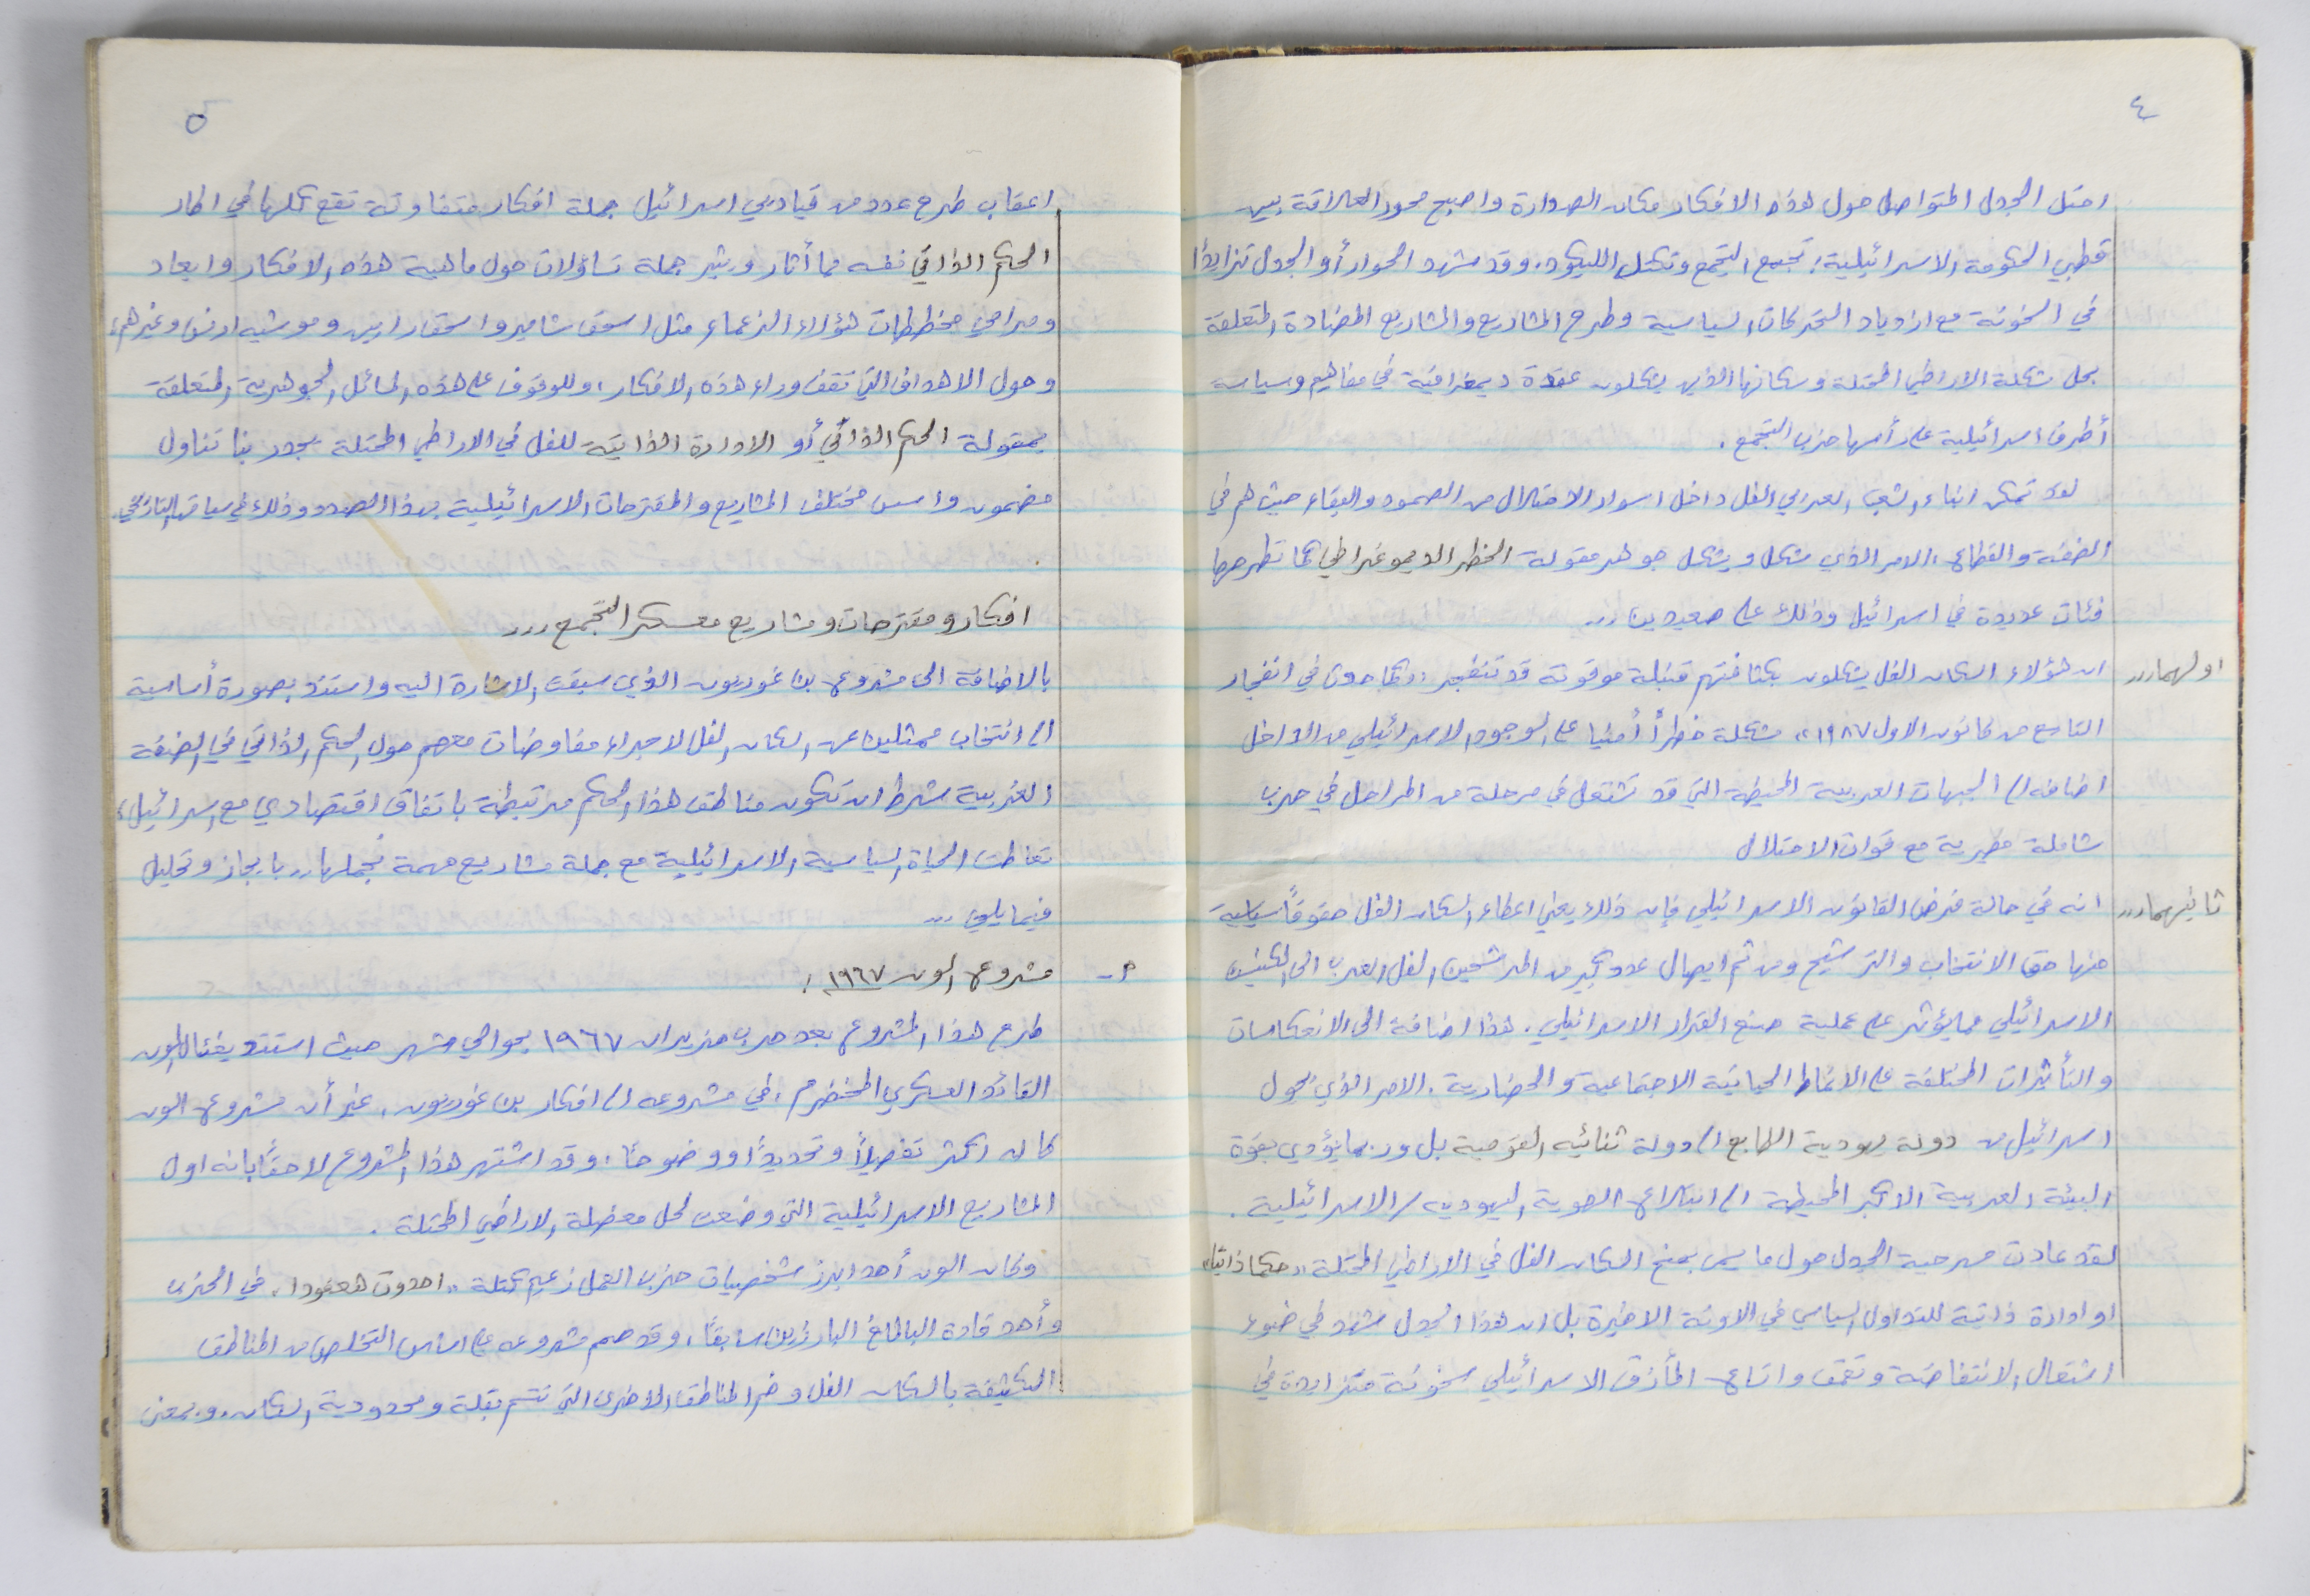 ٤
احتل الجدل المتواصل حول هذه الافكار مكان الصدارة واصبح محور العلاقة بين
قطبي الحكومة الاسرائيلية: تجمع التجمع وتكتل الليكود، وقد شهد الحوار أو الجدل تزايدًا
في السخونة مع ازدياد التحركات السياسية وطرح المشاريع والمشاريع المضادة المتعلقة
بحل مشكلة الاراضي المحتلة وسكانها الذين يشكلون عقدة ديمغرافية في مفاهيم وسياسة
أطرف اسرائيلية على رأسها حزب التجمع .
لقد تمكن ابناء الشعب العربي الفل داخل اسوار الاحتلال من الصمود والبقاء حيث هم في
الضفة والقطاع ، الامر الذي شكل ويشكل جوهر مقولة الخطر الديموغراطي كما تطرحها
فئات عديدة في اسرائيل وذلك على صعيدين ...
اولهما...
ان هؤلاء السكان الفل يشكلون بكثافتهم قنبلة موقوتة قد تنفجر "كما حدث في انفجار
التاسع من كانون الاول ١٩٨٧" مشكلة خطرًا أمنيا على الوجود الاسرائيلي من الداخل
اضافة الى الجبهات العربية المحيطة التي قد تشتعل في مرحلة من المراحل في حرب
شاملة مصيرية مع قوات الاحتلال
ثانيهما...
انه في حالة فرض القانون الاسرائيلي فإن ذلك يعني اعطاء السكان الفل حقوقًا سياسية
منها حق الانتخاب والترشيح ومن ثم ايصال عدد كبير من المرشحين الفل العرب الى الكنيست
الاسرائيلي مما يؤثر على عملية صنع القرار الاسرائيلي . هذا اضافة الى الانعكاسات
والتأثيرات المختلفة على الانماط الحياتية الاجتماعية والحضارية . الامر الذي يحول
اسرائيل من دولة يهودية الطابع الى دولة ثنائيه القومية بل وربما يؤدي بقوة
البيئة العربية الاكبر المحيطة الى ابتلاع الهوية اليهوديه / الاسرائيلية .
لقد عادت مسرحية الجدل حول ما يسمى بمنح السكان الفل في الاراضي المحتلة "حكما ذاتيًا"
او ادارة ذاتية للتداول السياسي في الاونة الاخيرة بل ان هذا الجدل شهد في ضوء
اشتعال الانتفاضة وتعمق واتساع المأزق الاسرائيلي سخونة متزايدة في
٥
اعقاب طرح عدد من قياديي اسرائيل جملة افكار متفاوتة تقع كلها في اطار
الحكم الذاتي نفسه مما أثار ويثير جملة تساؤلات حول ماهية هذه الافكار وابعاد
ومرامي مخططات هؤلاء الزعماء مثل اسحق شامير واسحق رابين وموشيه ارنس وغيرهم،
وحول الاهداف التي تقف وراء هذه الافكار ، وللوقوف على هذه المسائل الجوهرية المتعلقة
بمقولة الحكم الذاتي أو الادارة الذاتية للفل في الاراضي المحتلة يجدر بنا تناول
مضمون واسس مختلف المشاريع والمقترحات الاسرائيلية بهذا الصدد وذلك في سياقها التاريخي.
افكار ومقترحات ومشاريع معسكر التجمع ...
بالاضافة الى مشروع بن غوريون الذي سبقت الاشارة اليه واستند بصورة أساسية
الى انتخاب ممثلين عن السكان الفل لاجراء مفاوضات معهم حول الحكم الذاتي في الضفة
الغربية شرط ان تكون مناطق هذا الحكم مرتبطة باتفاق اقتصادي مع اسرائيل،
تعاطت الحياة السياسية الاسرائيلية مع جملة مشاريع مهمة نجملها .. بايجاز وتحليل
فيما يلي ...
مشروع الون ١٩٦٧ :
طرح هذا المشروع بعد حرب حزيران ١٩٦٧ بحوالي شهر حيث استند يغئال الون
القائد العسكري المخضرم ، في مشروعه الى افكار بن غوريون . غير أن مشروع الون
كان اكثر تفصيلًا وتحديدًا ووضوحًا ، وقد اشتهر هذا المشروع لاحقًا بانه اول
المشاريع الاسرائيلية التي وضعت لحل معضلة الاراضي المحتلة .
وكان الون أحد ابرز شخصيات حزب العمل زعيم كتلة "احدوت هعفودا" في الحزب
وأحد قادة البالماخ البارزين سابقًا ، وقد صمم مشروعه على اساس التخلص من المناطق
الكثيفة بالسكان الفل وضم المناطق الاخرى التي تتسم بقلة ومحدودية السكان ، وبمعنى